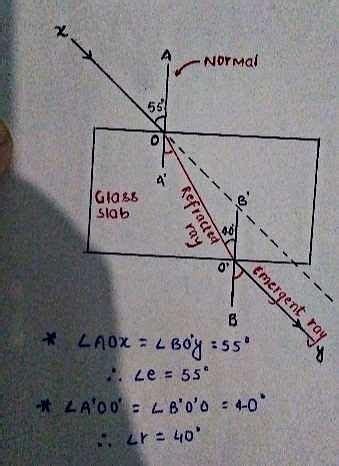 x
A
Normal
55°
O
A'
Glass
slab
Refracted
ray
B'
40°
O'
emergent ray
B
y
* ∠AOx = ∠BO'y = 55°
∴ ∠e = 55°
* ∠A'OO' = ∠B'O'O = 40°
∴ ∠r = 40°